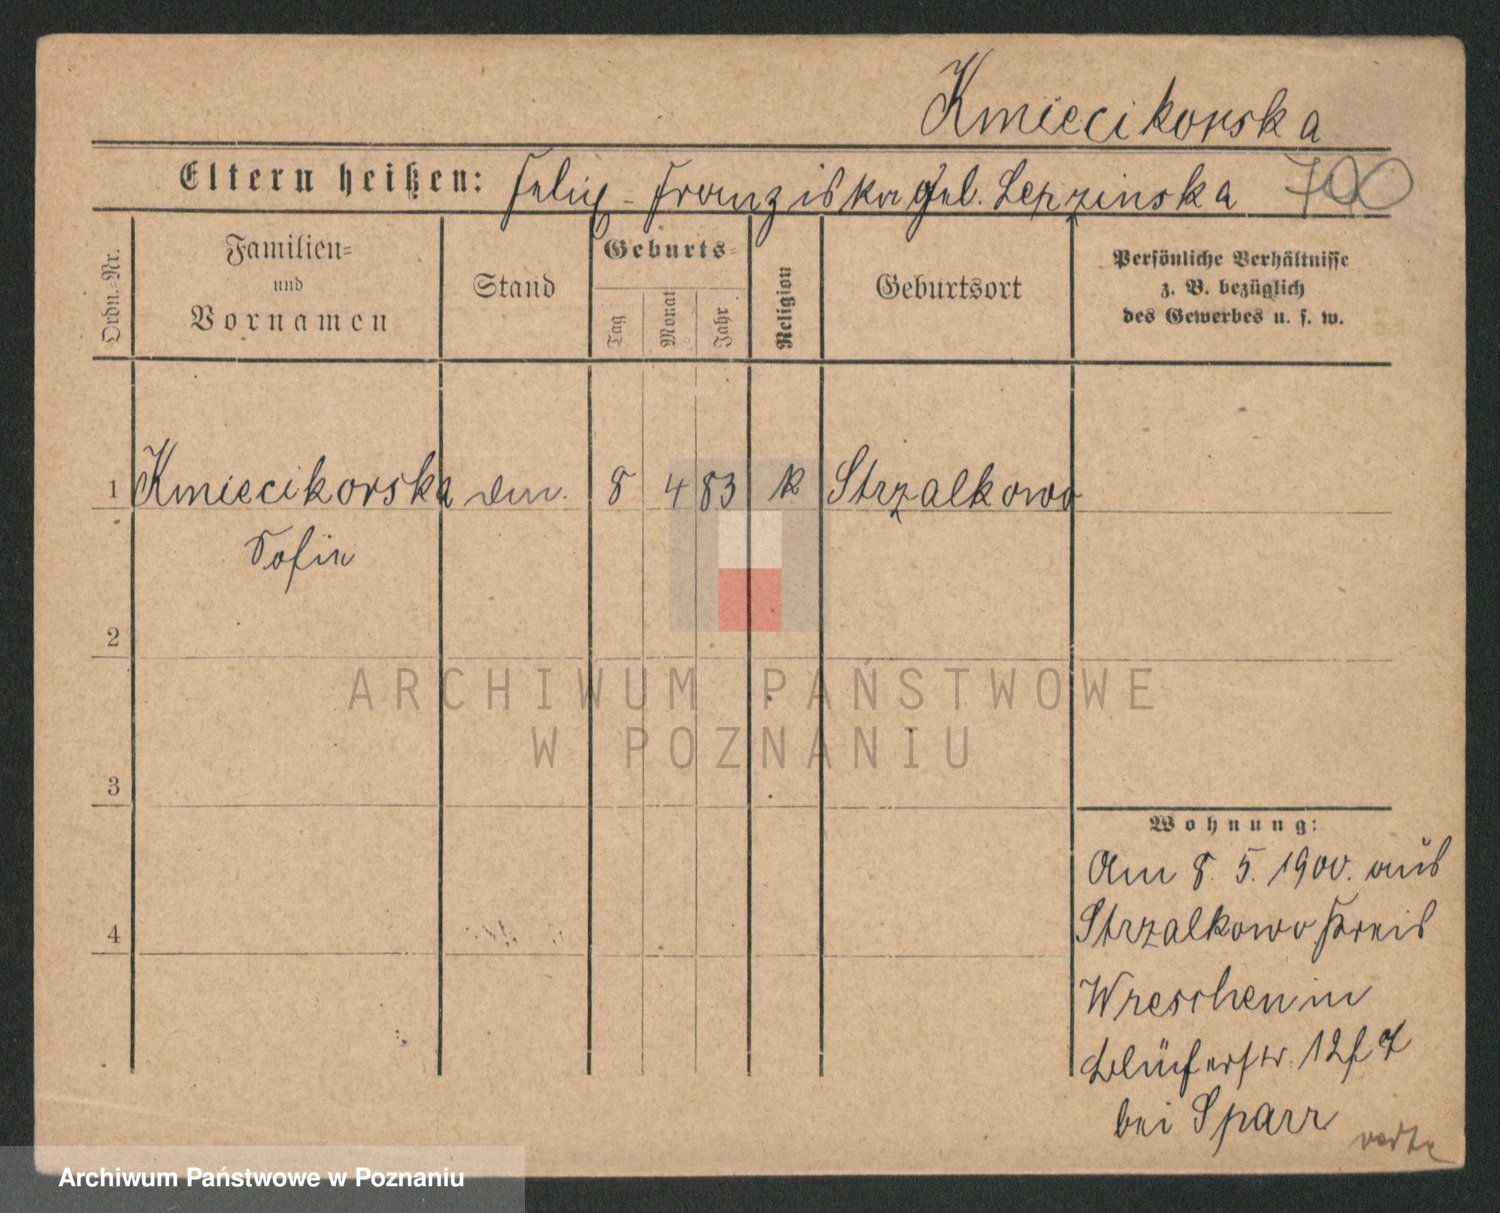 Kmiecikowska
Eltern heißen: Felix - Franziska geb. Lepzinska 700
Ordn.-Nr.
Familien-
und
Vornamen
Stand
Geburts-
Tag
Monat
Jahr
Religion
Geburtsort
Persönliche Verhältnisse
z. B. bezüglich
des Gewerbes u. s. w.
1 Kmiecikowska 8 4 83 k Strzalkowo
Sofie
2
ARCHIWUM PAŃSTWOWE
W POZNANIU
3
Wohnung:
Am 8. 5. 1900. aus
4 Strzalkowo Kreis
Wreschen in
12
bei Sparr
verte
Archiwum Państwowe w Poznaniu